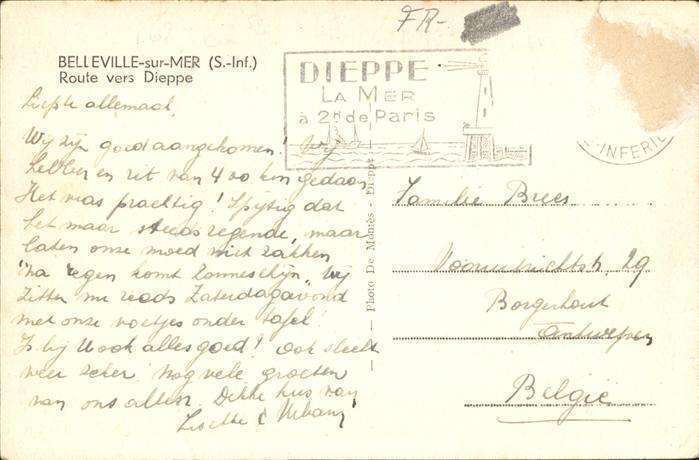 FR-
BELLEVILLE-sur-MER (S.-Inf.)
Route vers Dieppe
DIEPPE
LA MER
à 2h de Paris
E-INFERIE
Liefste allemaal,
Wij zijn goed aangekomen! Wij
hebben en rit van 400 km gedaan
Het was prachtig! Spijtig dat
het maar steeds regende, maar
laten onze moed niet zakken
"na regen komt zonneschijn" Wij
zitten nu reeds Zaterdagavond
met onze voetjes onder tafel!
Is bij U ook alles goed! Ook slecht
weer zeker. Nog vele groeten
van ons allen. Dikke kus van
Lisette & Urbain
— Photo De Monès - Dieppe —
Familie Bries
29
Borgerhout
Antwerpen
België